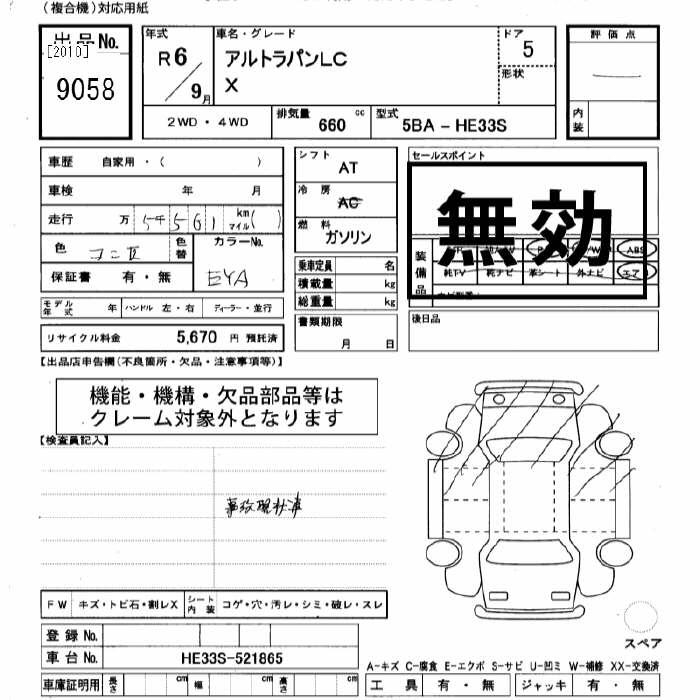 (複合機)対応用紙
出品No.
[2010]
9058
年式
R6/9月
車名・グレード
アルトラパンLC
X
ドア
5
形状
評価点
内装
2WD・4WD
排気量 660 cc
型式 5BA-HE33S
車歴 自家用・( )
車検 年 月
走行 万 km マイル( )
色
色替
カラーNo.
保証書 有・無
モデル年式 年 ハンドル 左・右 ディーラー・並行
リサイクル料金 5,670 円 預託済
シフト AT
冷房 AC
燃料 ガソリン
乗車定員 名
積載量 kg
総重量 kg
書類期限
月 日
セールスポイント
無効
装備品
ABS
純TV 純ナビ 革シート 外ナビ エア
後日品
【出品店申告欄(不良箇所・欠品・注意事項等)】
機能・機構・欠品部品等は
クレーム対象外となります
【検査員記入】
事故現状車
FW キズ・トビ石・割レX
シート内装 コゲ・穴・汚レ・シミ・破レ・スレ
登録No.
車台No. HE33S-521865
車庫証明用 長さ cm 幅 cm 高さ cm
スペア
A-キズ C-腐食 E-エクボ S-サビ U-凹ミ W-補修 XX-交換済
工具 有・無 ジャッキ 有・無